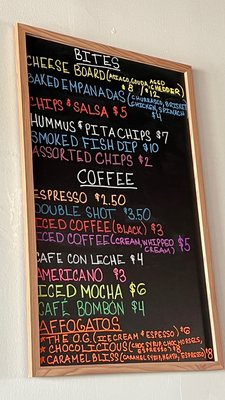 BITES
CHEESE BOARD (MIAGO, GOUDA, AGED CHEDDER)
$8 / $12
BAKED EMPANADAS (CHURRASCO, BRISKET
CHICKEN, SPINACH
$4
CHIPS & SALSA $5
HUMMUS & PITA CHIPS $7
SMOKED FISH DIP $10
ASSORTED CHIPS $2
COFFEE
ESPRESSO $2.50
DOUBLE SHOT $3.50
ICED COFFEE (BLACK) $3
ICED COFFEE (CREAM, WHIPPED CREAM) $5
CAFE CON LECHE $4
AMERICANO $3
ICED MOCHA $6
CAFÉ BOMBÓN $4
AFFOGATOS
* THE O.G. (ICE CREAM & ESPESSO) $6
* CHOCOLICIOUS (CHOC SYRUP, CHOC MORSELS,
ESPRESSO) $8
* CARAMEL BLISS (CARAMEL SYRUP, HEATH, ESPRESSO) $8